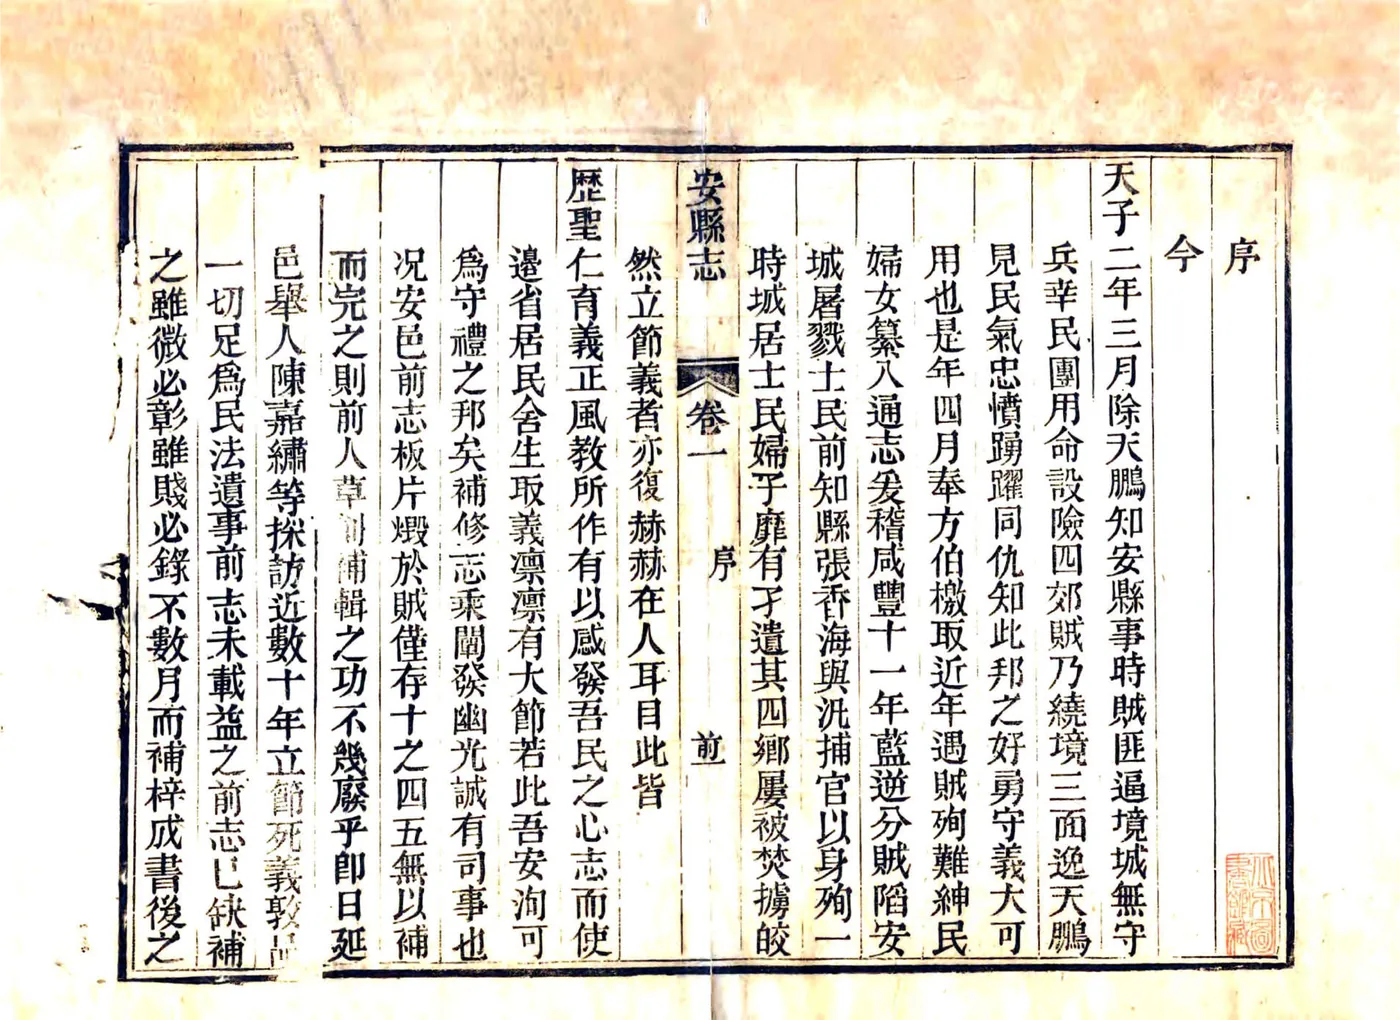 序
今
天子二年三月除天鵬知安縣事時賊匪逼境城無守
兵幸民團用命設險四郊賊乃繞境三面逸天鵬
見民氣忠憤踴躍同仇知此邦之好勇守義大可
用也是年四月奉方伯檄取近年遇賊殉難紳民
婦女纂入通志爰稽咸豐十一年藍逆分賊陷安
城屠戮士民前知縣張香海與汛捕官以身殉一
時城居士民婦子靡有孑遺其四鄉屢被焚擄皎
安縣志 卷一 序 前一
然立節義者亦復赫赫在人耳目此皆
歷聖仁育義正風教所作有以感發吾民之心志而使
邊省居民舍生取義凛凛有大節若此吾安洵可
為守禮之邦矣補修志乘闡發幽光誠有司事也
况安邑前志板片燬於賊僅存十之四五無以補
而完之則前人草創補輯之功不幾廢乎卽日延
邑舉人陳嘉繡等採訪近數十年立節死義敦品
一切足為民法遺事前志未載益之前志已缺補
之雖微必彰雖賤必錄不數月而補梓成書後之